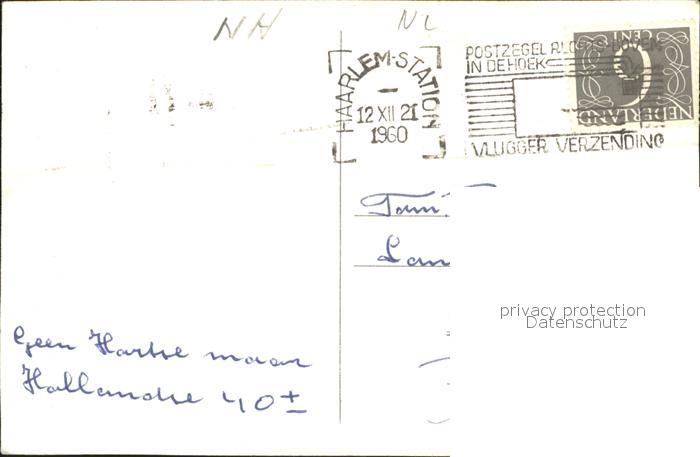 NH
NL
HAARLEM-STATION
12 XII 21
1960
POSTZEGEL RECHTS BOVEN
IN DE HOEK
VLUGGER VERZENDING
CENT
6
NEDERLAND
Fam.
Lan
privacy protection
Datenschutz
Geen Hartse maar
Hollandse 40 ±